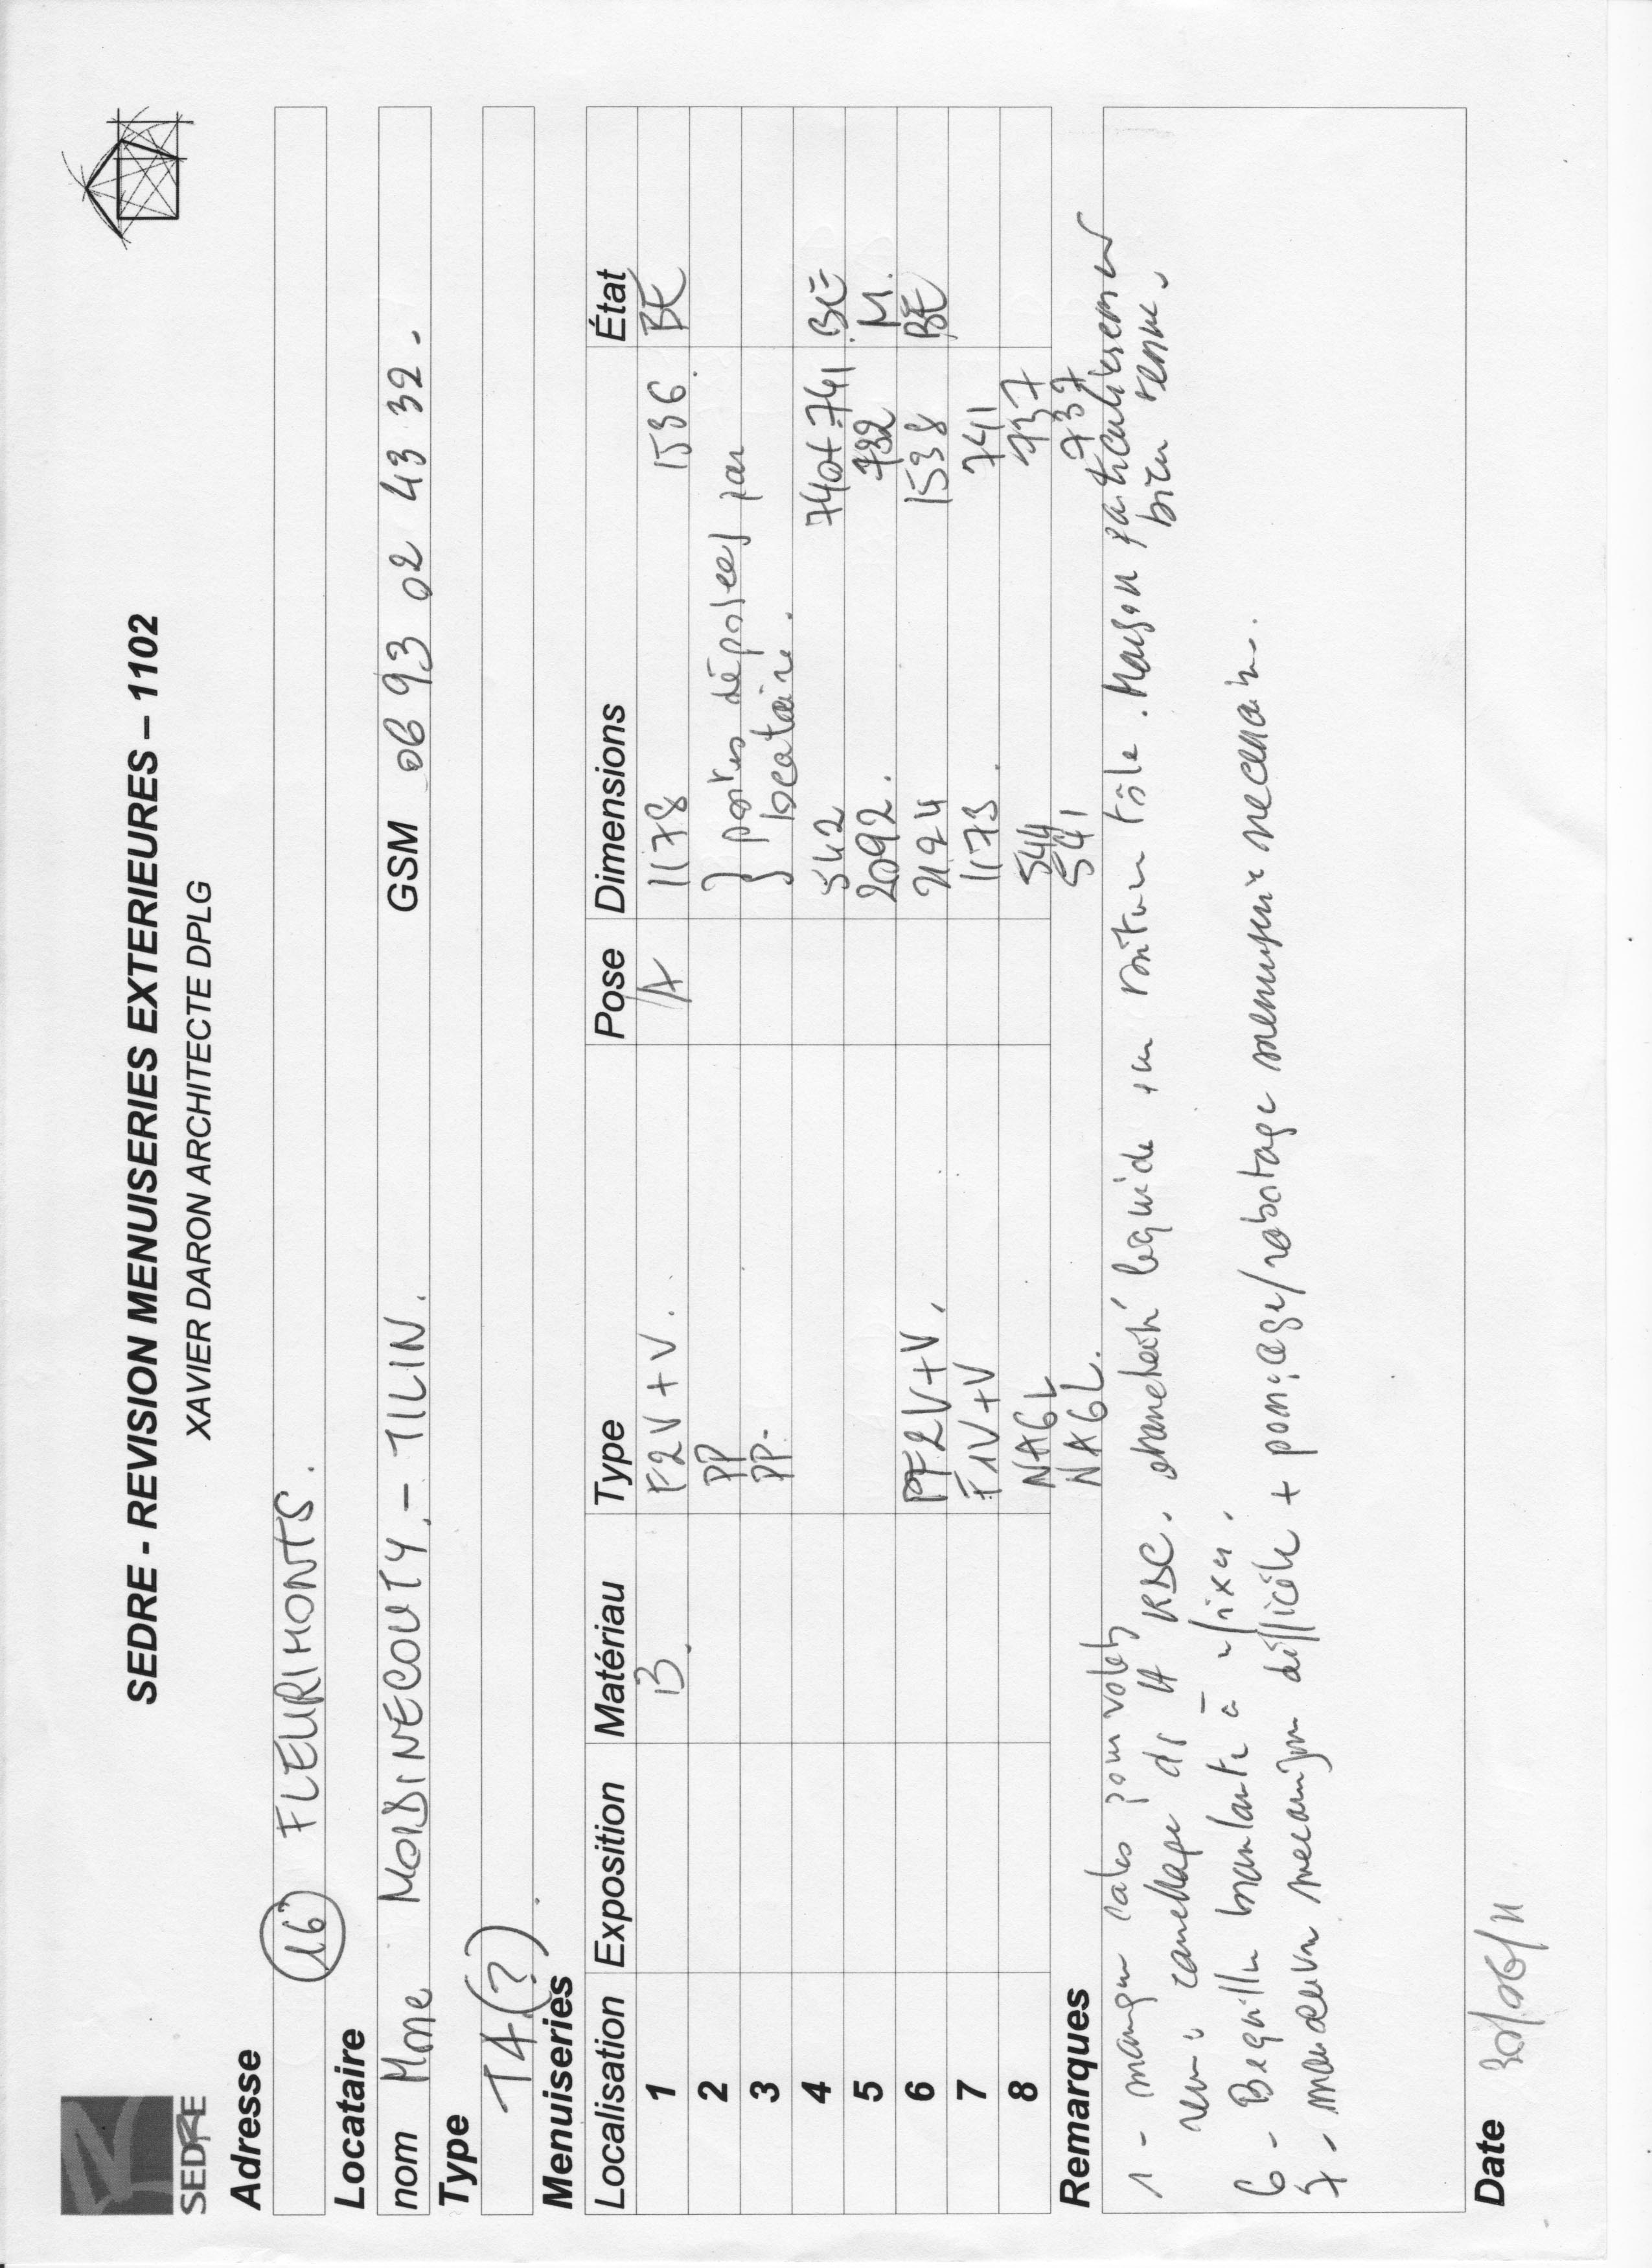 SEDRE
SEDRE - REVISION MENUISERIES EXTERIEURES – 1102
XAVIER DARON ARCHITECTE DPLG
Adresse
16 FLEURIMONTS.
Locataire
nom Mme MODINECOUTY - TILIN. GSM 0693 02 43 32.
Type
T4 (?).
Menuiseries
Localisation Exposition Matériau Type Pose Dimensions État
1 B. F2V+V. A 1178 1536. BE
2 PP } portes déposées par
3 PP. locataire.
4 542 740+741 BE
5 2092. 732 M.
6 PF2V+V. 2124 1538 BE
7 F1V+V 1173. 741
8 NAGL 544 737
NAGL. 541 737
Remarques
1 - manque cales pour volets
carrelage ds RDC. étanchéité liquide sur toiture tôle. Maison particulièrement
bien tenue.
6 - Bequille branlante à fixer.
7 - manoeuvre difficile + ponçage/rabotage menuiserie necessaire.
Date 30/06/11